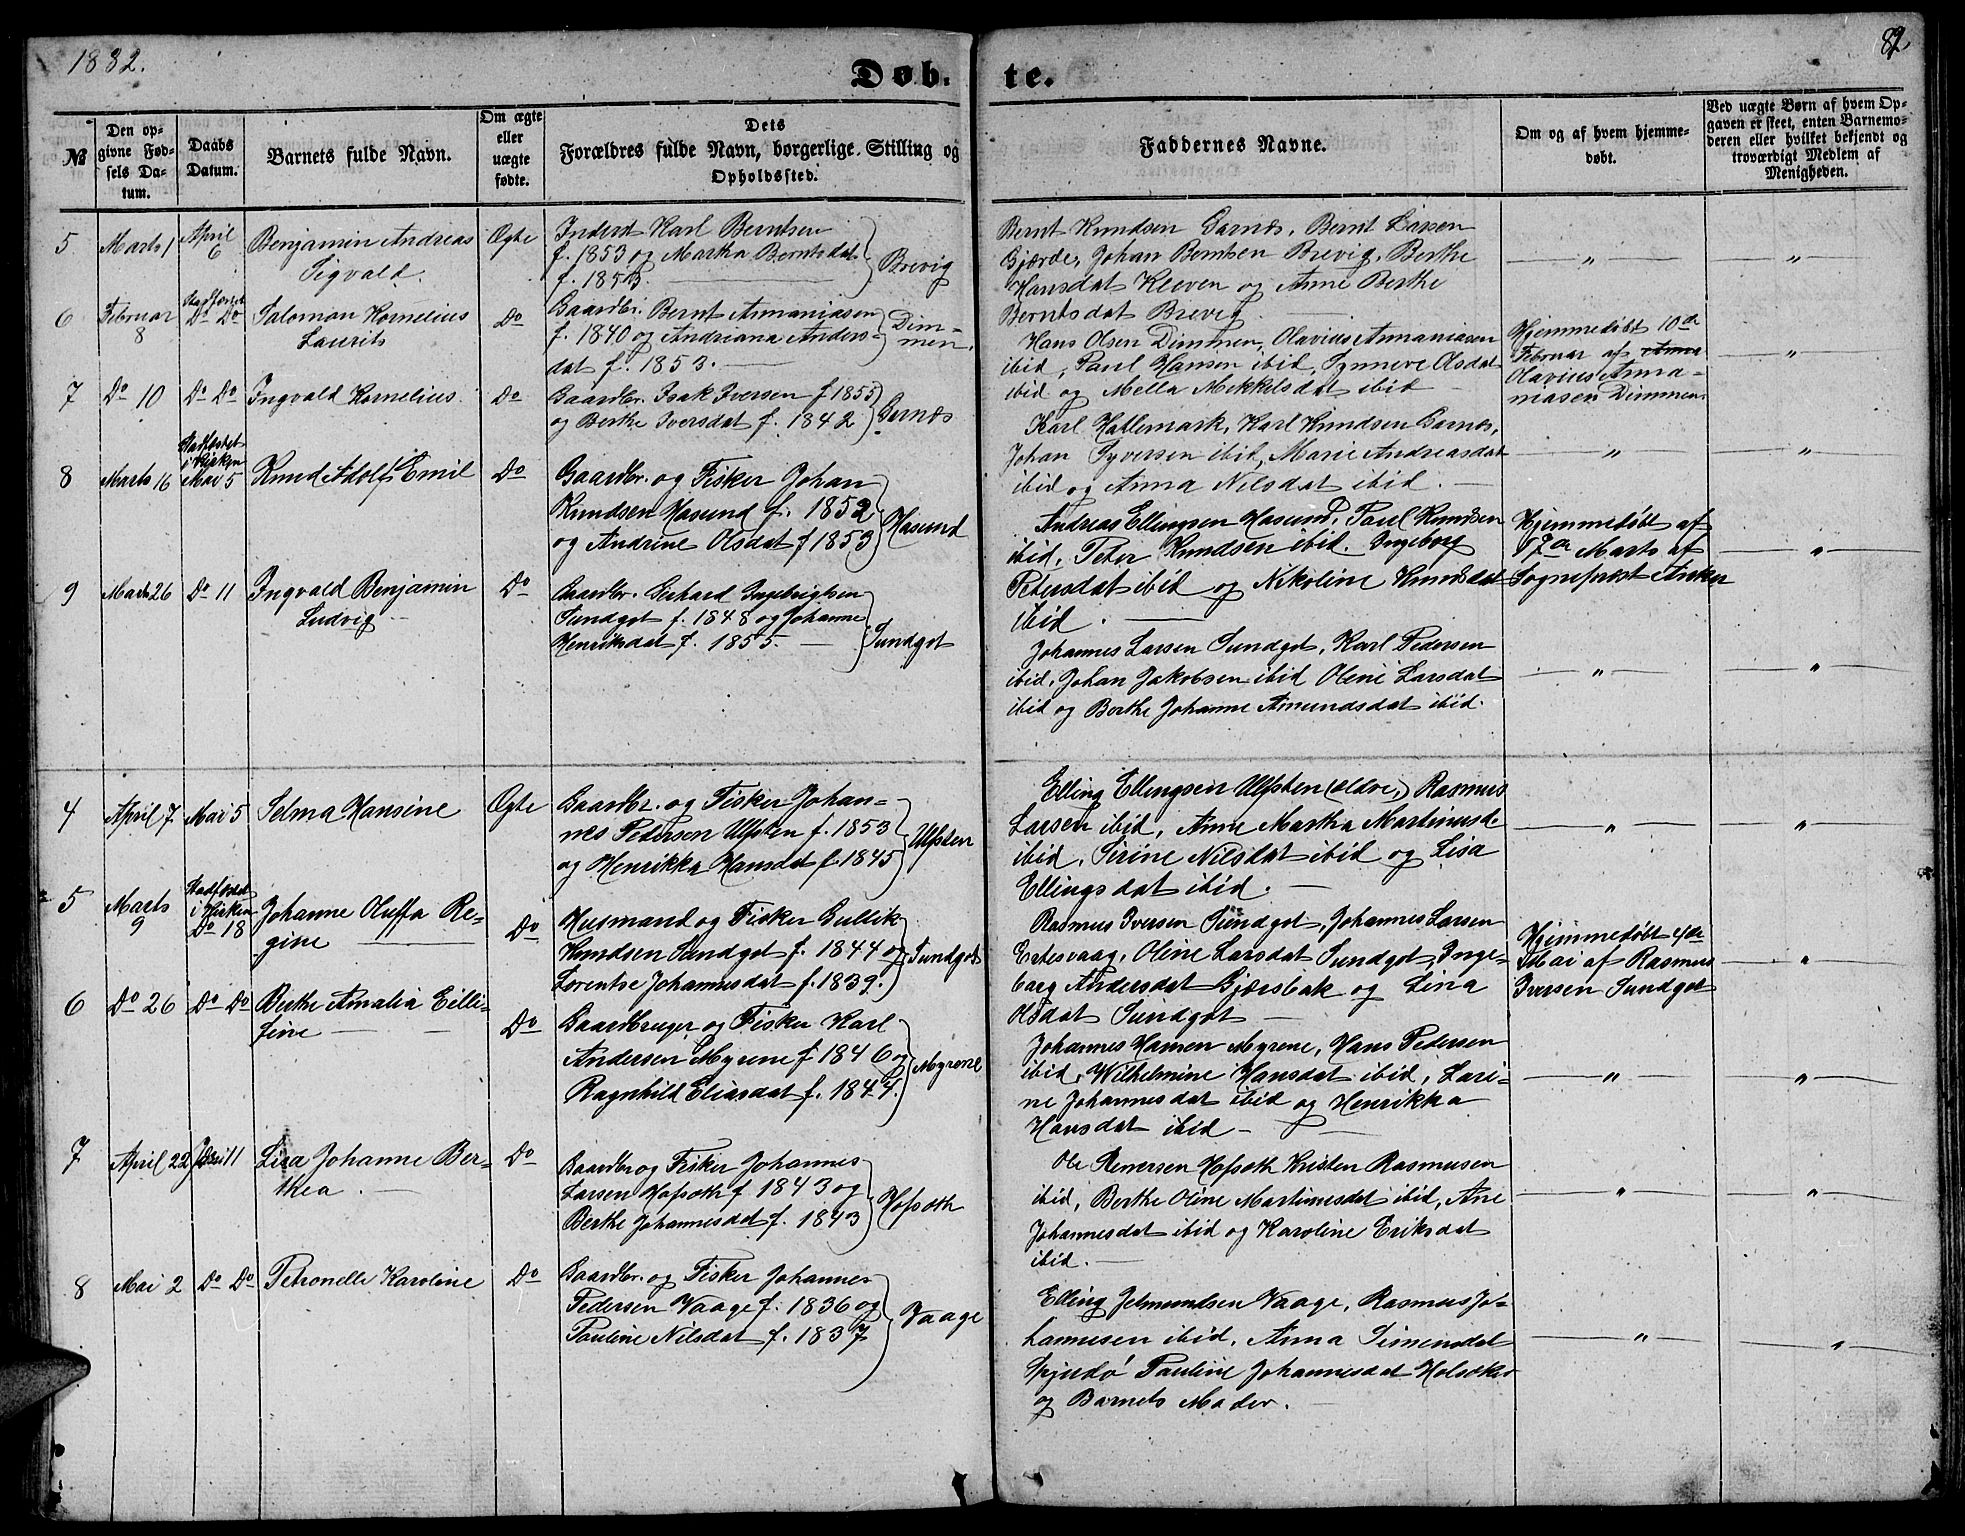 1882.
82.
Døb-
te.
№
Den op-
givne Fød-
sels Da-
tum.
Daabs
Datum.
Barnets fulde Navn.
Om ægte
eller
uægte
fødte.
Dets
Forældres fulde Navn, borgerlige Stilling og
Opholdssted.
Faddernes Navne.
Om og af hvem hjemme-
døbt.
Ved uægte Børn af hvem Op-
gaven er skeet, enten Barnemo-
deren eller hvilket bekjendt og
troværdigt Medlem af
Menigheden.
5 Marts 1 April 6 Benjamin Andreas
Sigvald.
Ægte
Inderst Karl Berntsen
f. 1853 og Martha Berntsdat
f. 1853. Brevig
Bernt Knudsen Garnes, Bernt Larsen
Gjærde, Johan Berntsen Brevig, Berthe
Hansdat Kleven og Anne Berthe
Berntsdat Brevig
6 Februar 8 Stadfæstet Do Do Salomon Kornelius
Laurits
Do
Gaardbr. Bernt Annaniasen
f. 1840 og Andriana Anders-
dat f. 1853. Dim-
men.
Hans Olsen Dimmen, Olavius Annaniasen
ibid, Paul Hansen ibid, Synneve Olsdat
ibid og Mella Mikkelsdat ibid
Hjemmedøbt 10de
Februar af Anna
Olavius Anna-
niasen Dimmen.
7 Do 10 Do Do Ingvald Kornelius
Do
Gaardbr. Isak Iversen f 1855
og Berthe Iversdat f. 1842 Garnes
Karl Hallemark, Karl Knudsen Garnes,
Johan Syversen ibid, Marie Andreasdat
ibid og Anna Nilsdat ibid.
8 Marts 16 Stadfæstet
i Kirken
Mai 5 Knud Adolf Emil
Do
Gaardbr. og Fisker Johan
Knudsen Hasund f. 1852
og Andrine Olsdat f 1853 Hasund
Andreas Ellingsen Hasund, Paul Knudsen
ibid, Peter Knudsen ibid. Ingeborg
Petersdat ibid og Nikoline Knudsdat
ibid.
Hjemmedøbt af
17de Marts af
Sogneprest Anker
9 Marts 26 Do 11 Ingvald Benjamin
Ludvig
Do
Gaardbr. Gerhard Ingebrigtsen
Sundgot f. 1848 og Johanne
Henriksdat f. 1855. Sundgot
Johannes Larsen Sundgot, Karl Pedersen
ibid, Johan Jakobsen ibid Oline Larsdat
ibid og Berthe Johanne Amundsdat ibid.
4 April 7 Mai 5 Selma Hansine
Ægte
Gaardbr. og Fisker Johan-
nes Pedersen Ulfsten f. 1853
og Henrikka Hansdat f. 1845 Ulfsten
Elling Ellingsen Ulfsten (ældre,) Rasmus
Larsen ibid, Anne Martha Martinusd
ibid, Sirine Nilsdat ibid og Lisa
Ellingsdat ibid.
5 Marts 9 Stadfæstet
i Kirken
Do 18 Johanne Oluffa Re-
gine
Do
Husmand og Fisker Gullik
Knudsen Sundgot f. 1844 og
Lorentse Johannesdat f. 1839. Sundgot
Rasmus Iversen Sundgot, Johannes Larsen
Eitesvaag, Oline Larsdat Sundgot, Inge-
borg Andersdat Gjærsbak og Lina
Olsdat Sundgot
Hjemmedøbt 4de
Mai af Rasmus
Iversen Sundgot
6 Do 26 Do Do Berthe Amalia Elli-
fine
Do
Gaardbruger og Fisker Karl
Andersen Myrene f 1846 og
Ragnhild Eliasdat f. 1844. Myrene
Johannes Hansen Myrene, Hans Pedersen
ibid, Wilhelmine Hansdat ibid, Lari-
ne Johannesdat ibid og Henrikka
Hansdat ibid
7 April 22 Juni 11 Lisa Johanne Ber-
thea.
Do
Gaardbr og Fisker Johannes
Larsen Hofseth f 1843 og
Berthe Johannesdat f. 1843 Hofseth
Ole Remersen Hofseth Kristen Rasmusen
ibid, Berthe Oline Martinusdat ibid, Ane
Johannesdat ibid og Karoline Eriksdat
ibid.
8 Mai 2 Do Do Petronelle Karoline
Do
Gaardbr. og Fisker Johannes
Pedersen Vaage f. 1836 og
Pauline Nilsdat f. 1837 Vaage
Elling Jetmundsen Vaage, Rasmus Jo-
hannesen ibid, Anna Simensdat
Pauline Johannesdat
og Barnets Moder.